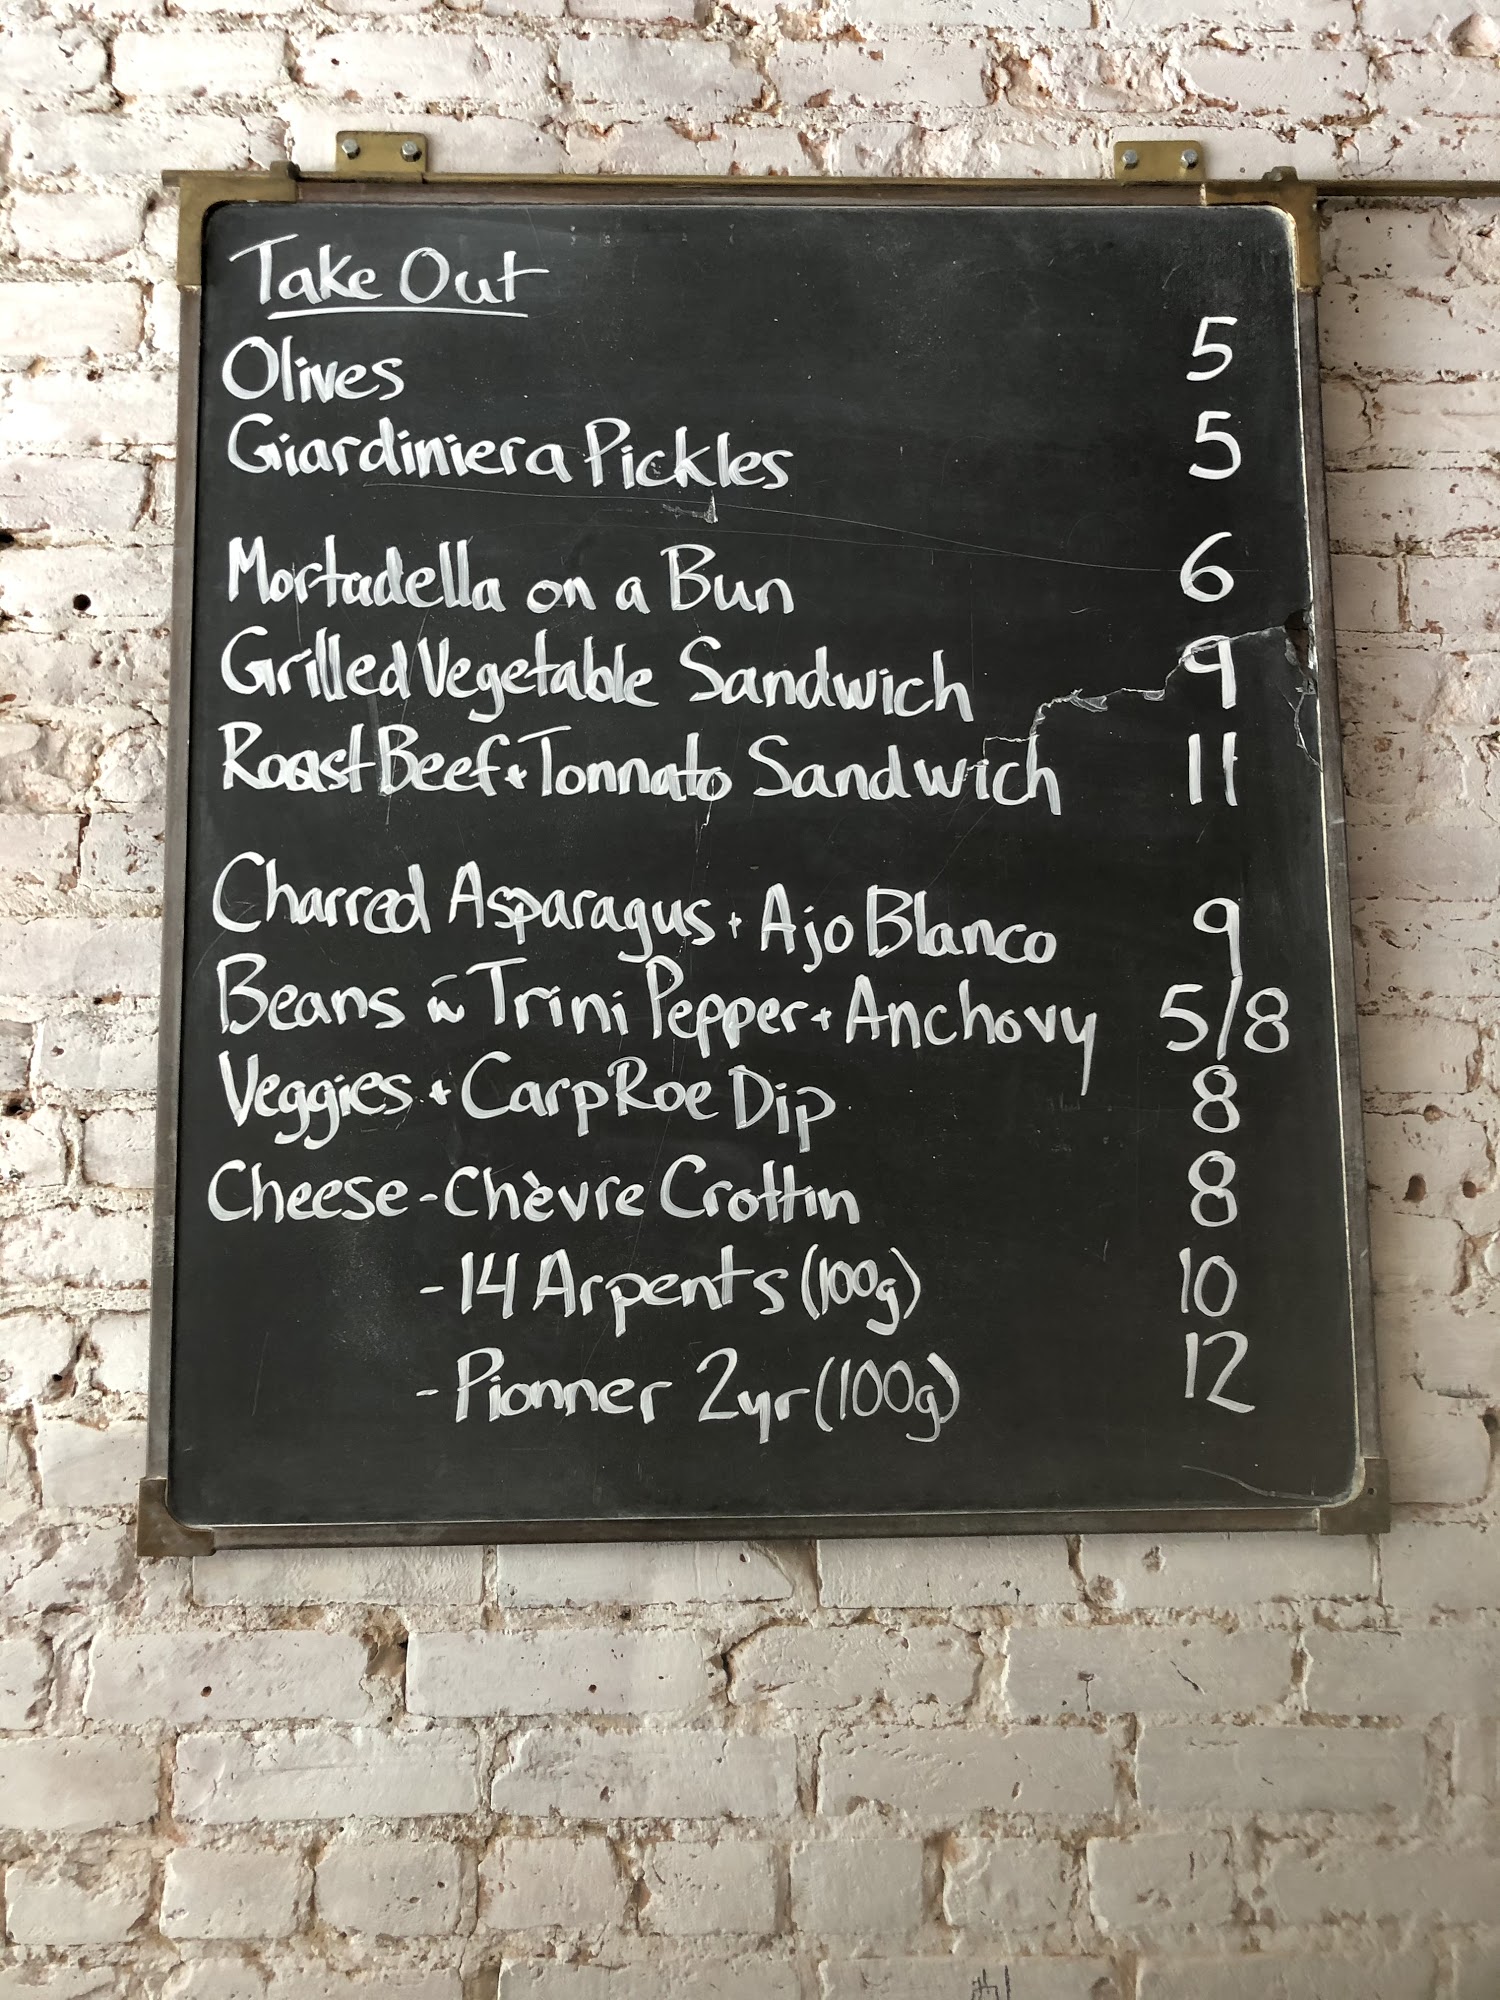 Take Out
Olives 5
Giardiniera Pickles 5
Mortadella on a Bun 6
Grilled Vegetable Sandwich 9
Roast Beef + Tonnato Sandwich 11
Charred Asparagus + Ajo Blanco 9
Beans in Trini Pepper + Anchovy 5/8
Veggies + Carp Roe Dip 8
Cheese - Chèvre Crottin 8
- 14 Arpents (100g) 10
- Pionner 2yr (100g) 12